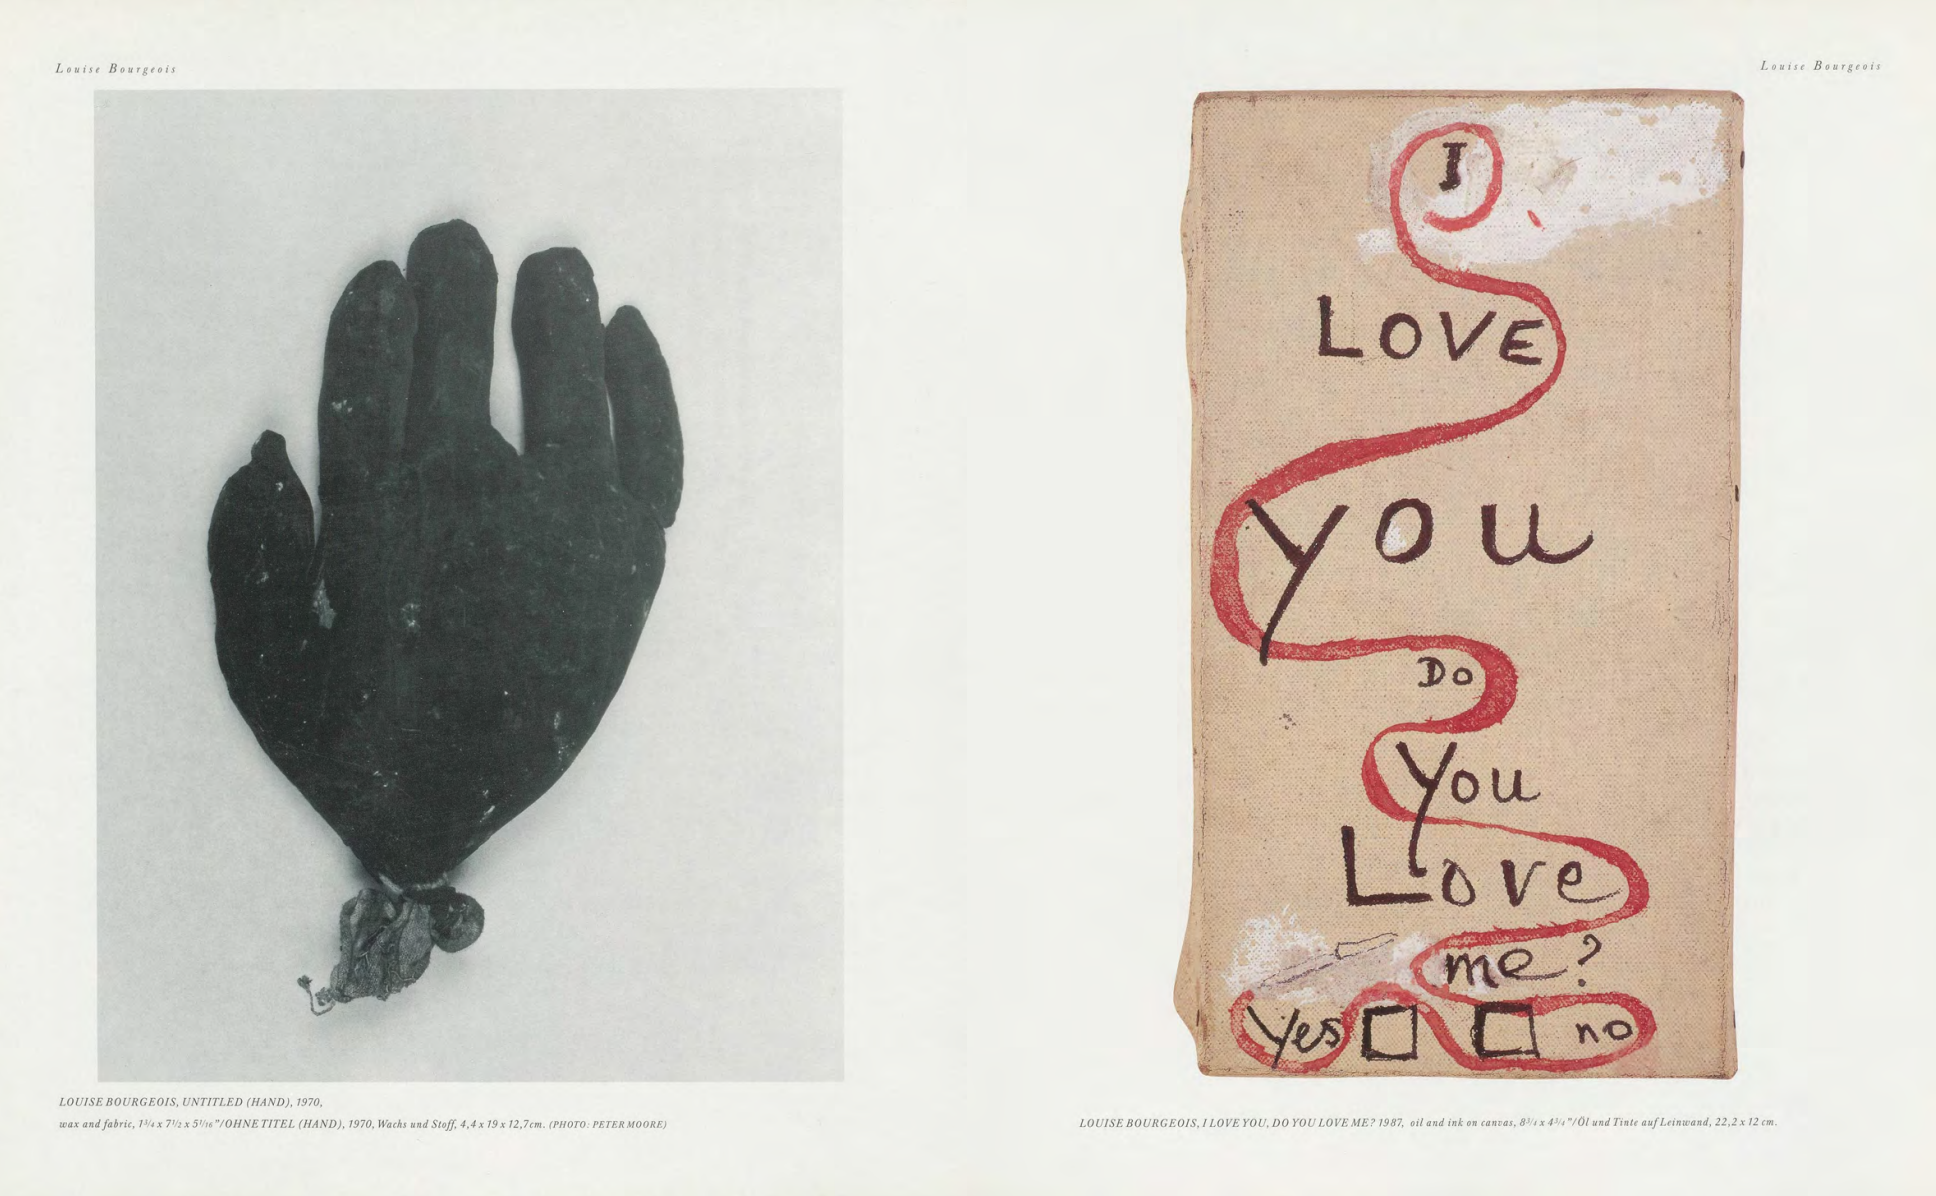 Louise Bourgeois
LOUISE BOURGEOIS, UNTITLED (HAND), 1970,
wax and fabric, 1 3/4 x 7 1/2 x 5 1/16 "/OHNE TITEL (HAND), 1970, Wachs und Stoff, 4,4 x 19 x 12,7cm. (PHOTO: PETER MOORE)
Louise Bourgeois
I
LOVE
you
Do
You
Love
me?
Yes no
LOUISE BOURGEOIS, I LOVE YOU, DO YOU LOVE ME? 1987, oil and ink on canvas, 8 3/4 x 4 3/4 "/Öl und Tinte auf Leinwand, 22,2 x 12 cm.